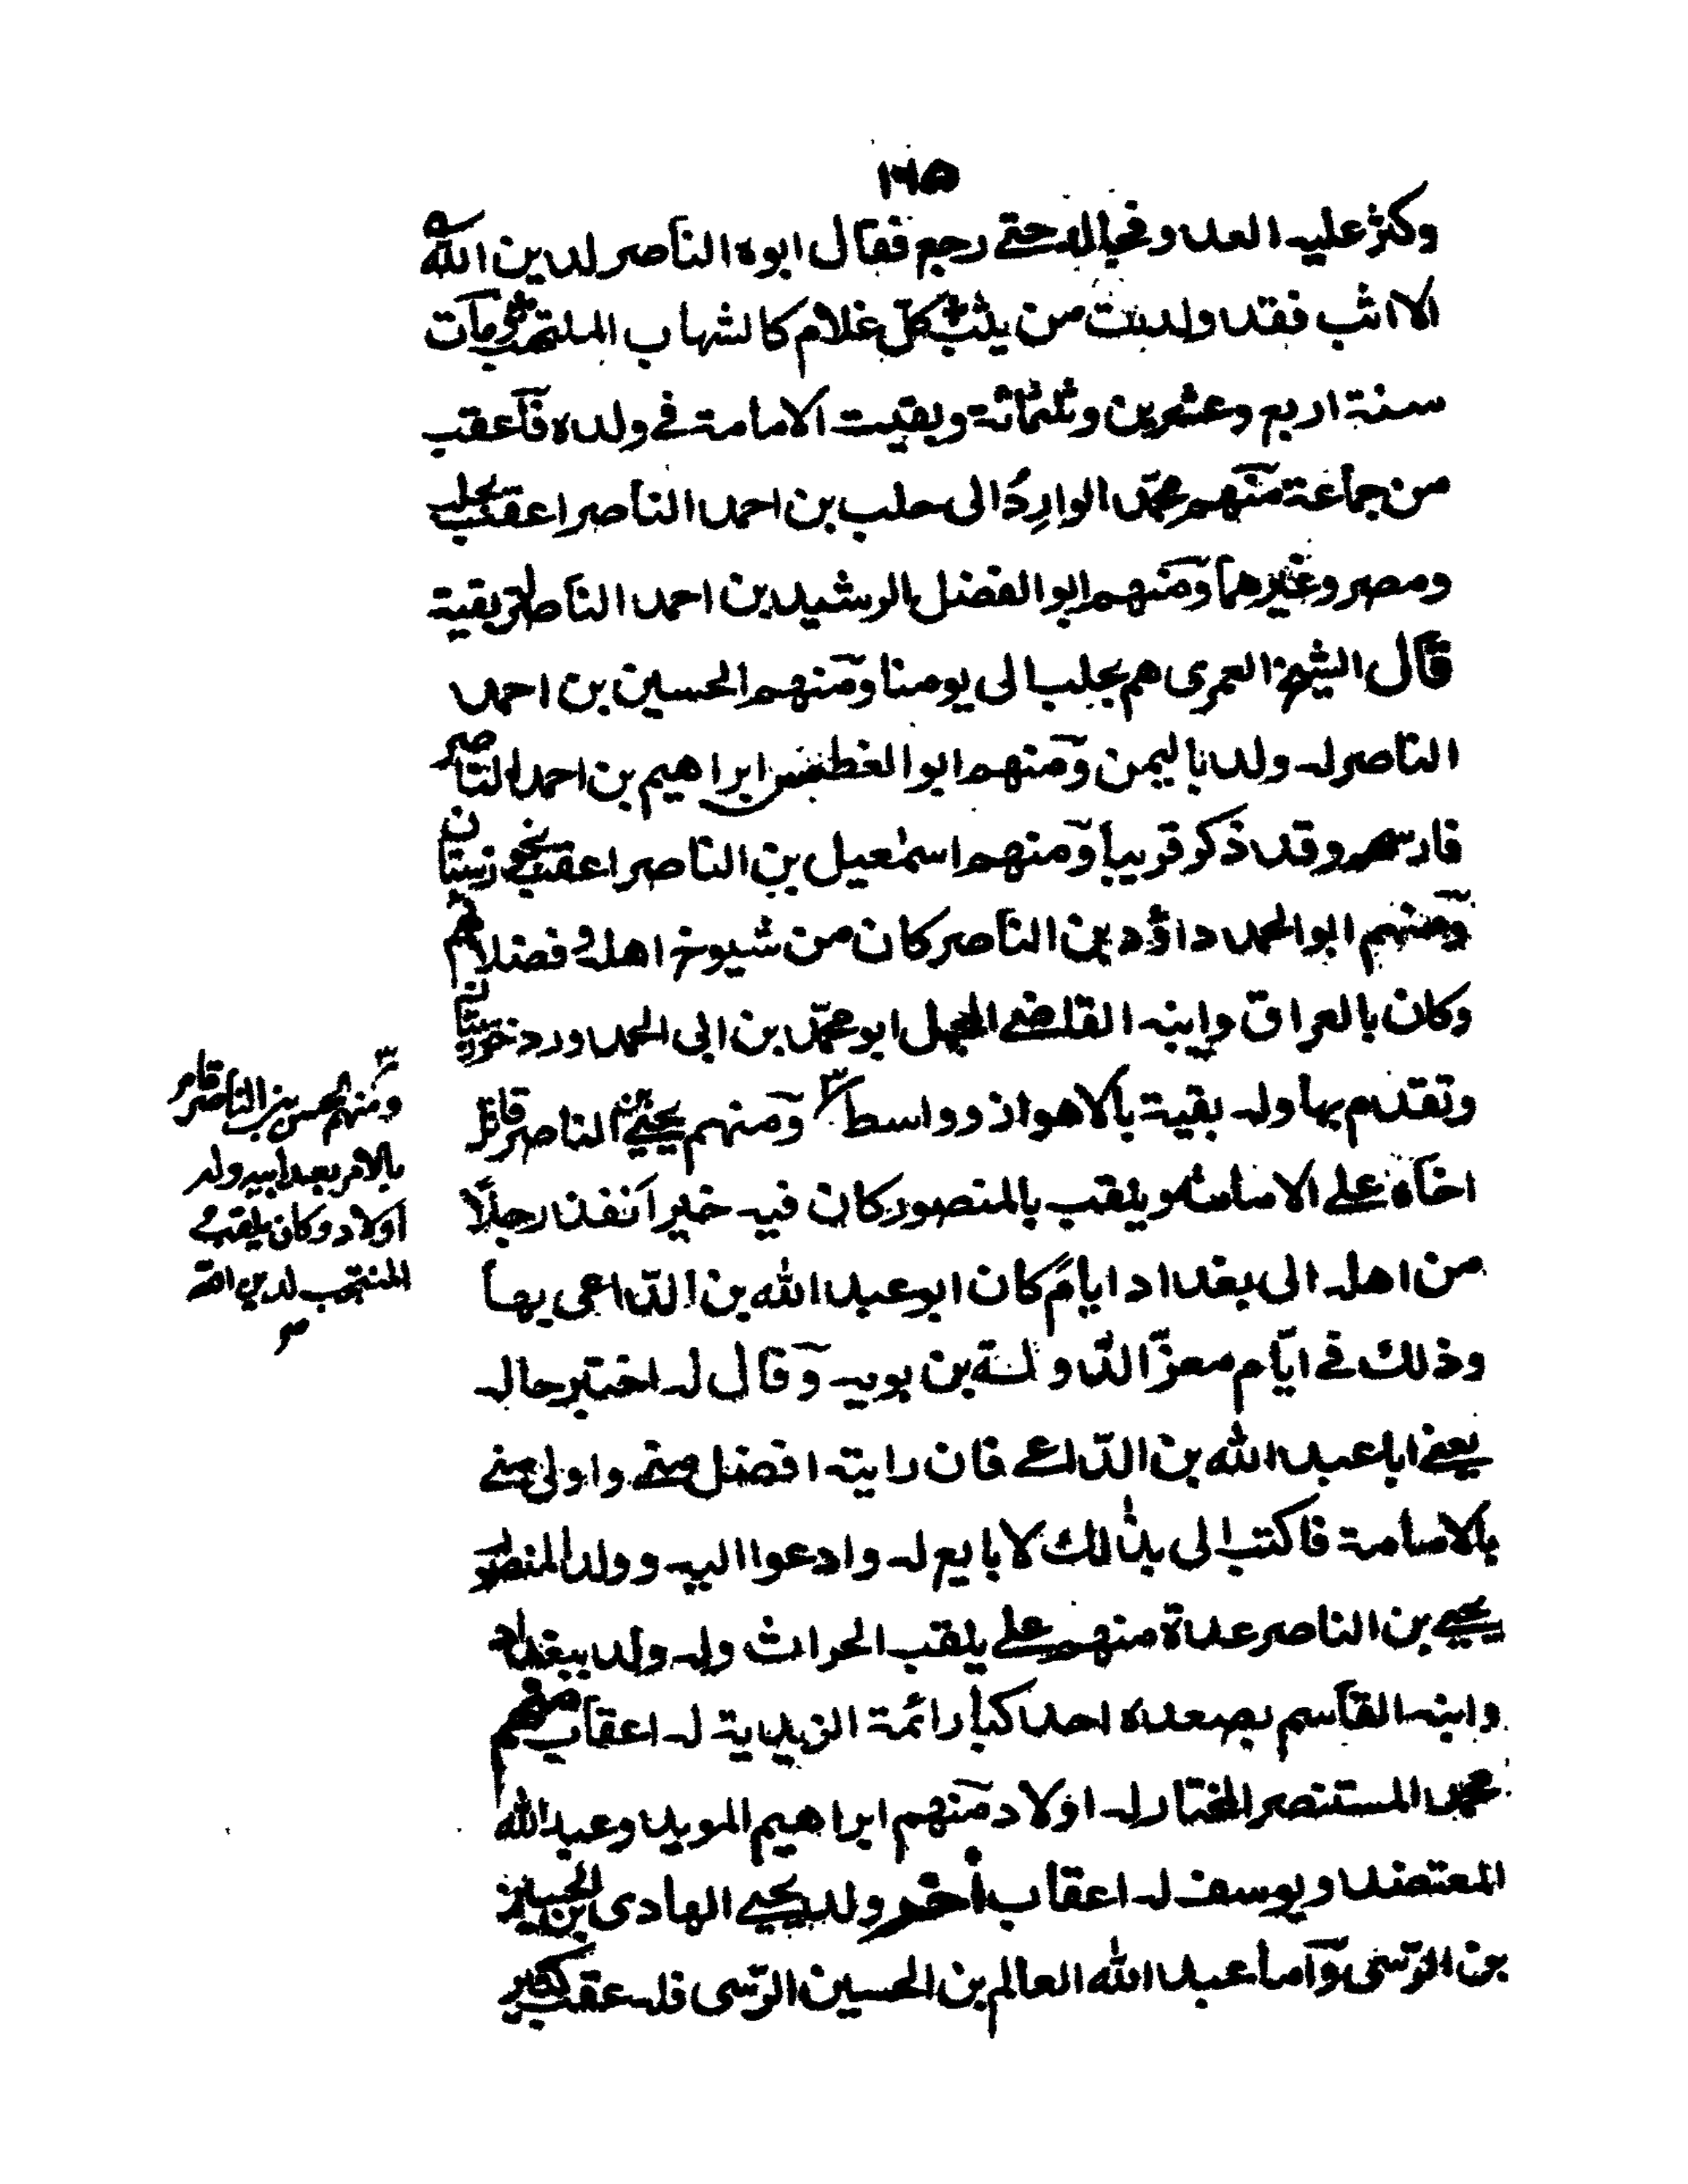 ١٦٥
وكثر عليه العدو فجالد حتى رجع فقال ابوه الناصر لدين الله
الا اثب فقد ولدت من يثب كل غلام كالشهاب الملتهب ومات
سنة اربع وعشرين وثلثمائة وبقيت الامامة في ولده فاعقب
من جماعة منهم محمد الوارد الى حلب بن احمد الناصر اعقب بحلب
ومصر وغيرهما ومنهم ابو الفضل الرشيد بن احمد الناصر له بقية
قال الشيخ العمرى هم بحلب الى يومنا ومنهم الحسين بن احمد
الناصر له ولد باليمن ومنهم ابو الغطمش ابراهيم بن احمد الناصر
وقد ذكر قريبا ومنهم اسمعيل بن الناصر اعقب بخوزستان
ومنهم ابو الحمد داؤد بن الناصر كان من شيوخ اهله وفضلائهم
وكان بالعراق وابنه القاضى ابو محمد بن ابى الحمد ورد خوزستان
وتقدم بها وله بقية بالاهواز وواسط ومنهم يحيى بن الناصر قاتل
اخاه على الامامة ويلقب بالمنصور كان فيه خير انفذ رجلا
من اهله الى بغداد ايام كان ابو عبد الله بن الداعى بها
وذلك في ايام معز الدولة بن بويه وقال له اختبر حاله
يعنى ابا عبد الله بن الداعى فان رايته افضل منى واولى منى
بالامامة فاكتب الى بذالك لابايع له وادعوا اليه وولد المنصور
يحيى بن الناصر عدة منهم على يلقب الحراث وله ولد ببغداد
وابنه القاسم بصعده احد كبار ائمة الزيدية له اعقاب منهم
محمد المستنصر المختار له اولاد منهم ابراهيم المويد وعبد الله
المعتضد ويوسف له اعقاب آخر ولد يحيى الهادى بن الحسين
بن الرسى واما عبد الله العالم بن الحسين الرسى فله عقب كثير
ومنهم الحسن بن الناصر قام
بالامر بعد ابيه وله
اولاد وكان يلقب
المنتجب لدين الله